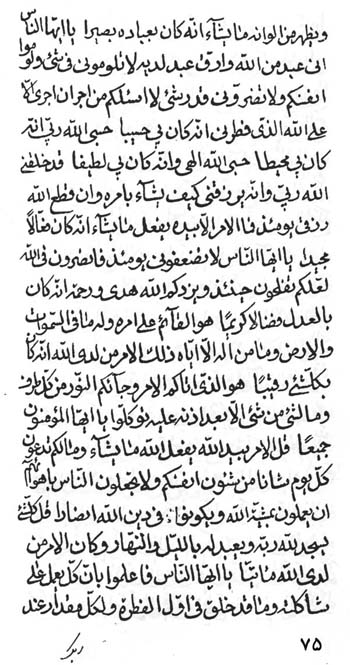 ويظهر من الواته ما يشآء انه كان بعباده بصيرا يا ايها الناس
انى عبد من الله وارق عبد لديه لا تلومونى فى شئ ولوموا
انفسكم ولا تضرونى قدر شئ لا اسئلكم من اجر ان اجرى الا
على الله الذى فطرنى انه كان بى حسيبا حسبى الله ربى انه
كان بى محيطا حسبى الله الهى وانه كان بى لطيفا قد خلقنى
الله ربى وانه يرزقنى كيف يشآء بامره وان قطع الله
رزقى يومئذ فالامر الا بيده يفعل ما يشآء انه كان فعالا
مجيدا يا ايها الناس لا تضعفونى يومئذ فانصرون فى الله
لعلكم تفلحون حينئذ ويزدكم الله هدى ورحمة انه كان
بالعدل فضالا كريما هو القآئم على امره وله ما فى السموات
والارض وما من اله الا اياه ذلك الامر من لدى الله انه كان
بكلشئ رقيبا هو الذى اتاكم الامر وجآئكم النور من كل طرف
وما لشئ من شئ الا بعد اذنه عليه توكلوا يا ايها المؤمنون
جميعا قل الامر بيد الله يفعل الله ما يشآء وما لكم تدعون
كل يوم شانا من شئون انفسكم ولا تجعلون الناس باهوآئهم
ان يعملون بمشية الله ويكونوا فى دين الله انصارا قل كلشئ
يسجد لله ربه ويعبد له بالليل والنهار وكان الامر من
لدى الله ماتيا يا ايها الناس فاعلموا بان كل يعمل على
شاكلته وما قد خلق فى اول الفطرة ولكل مقدار عند
ربك
٧٥